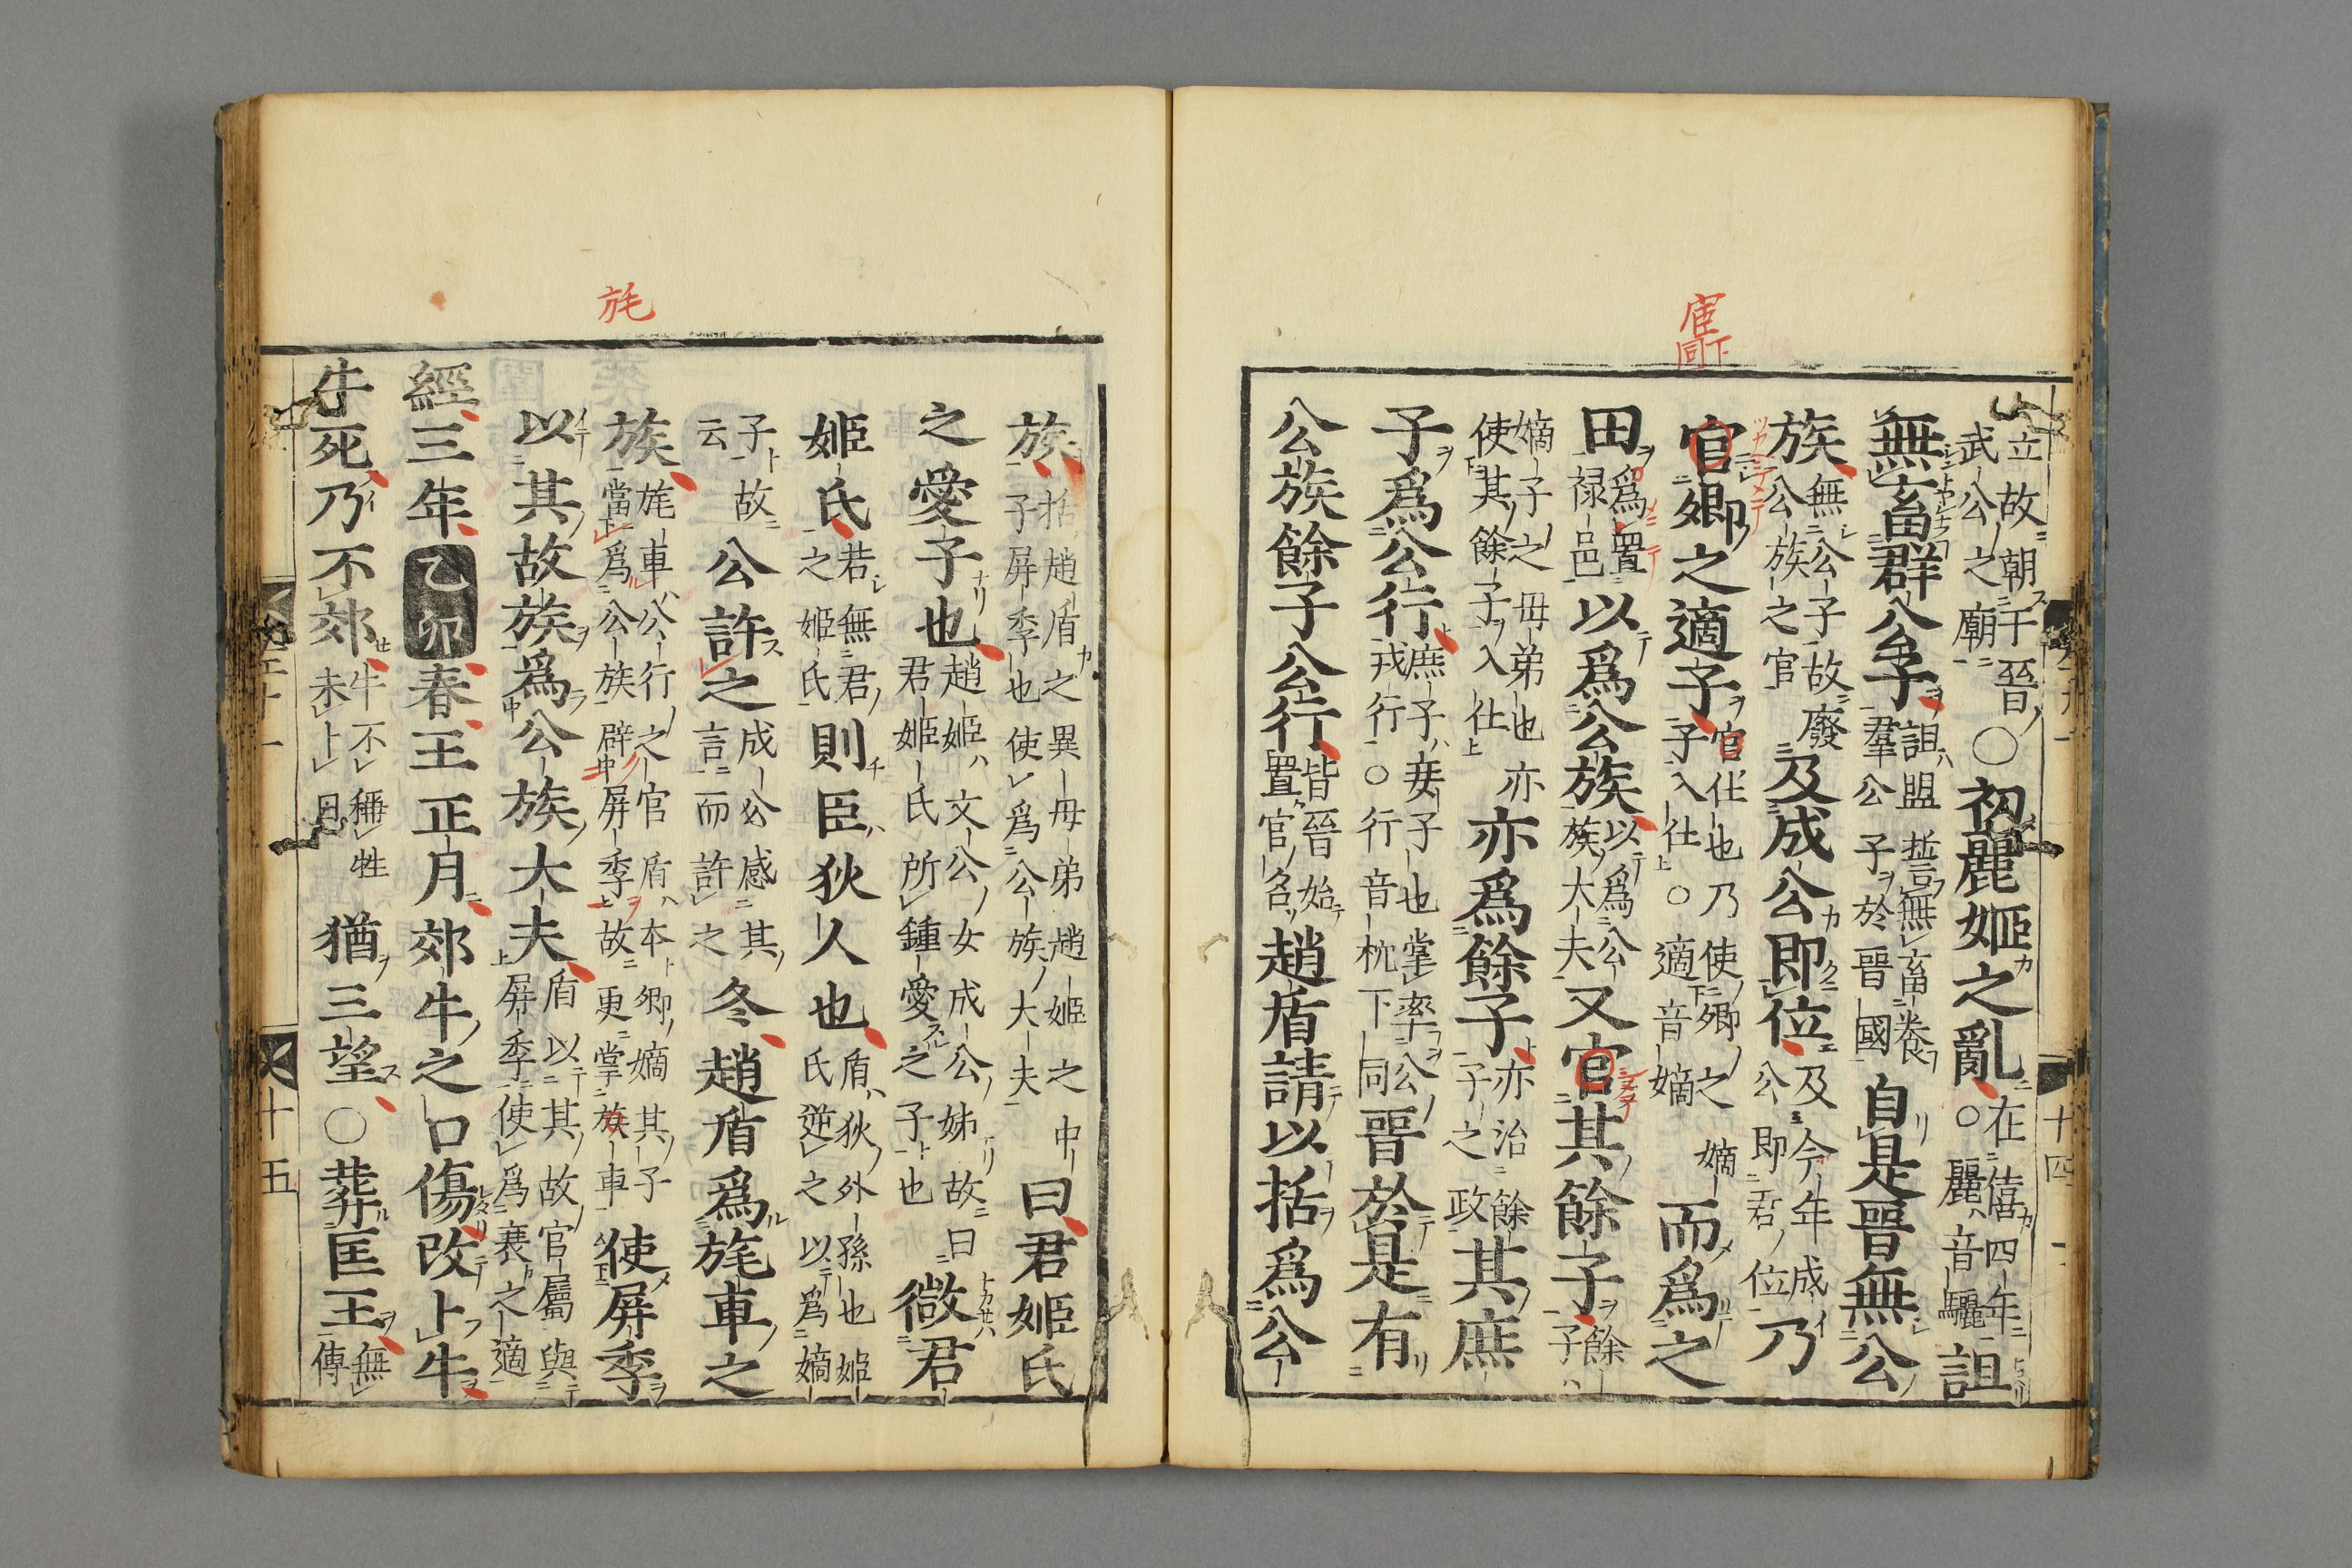 宦
下同
立故朝于晉
武公之廟
○初麗姬之亂
在僖四年
○麗音驪
詛
無畜群公子
詛盟誓無畜養
羣公子於晉國
自是晉無公
族
無公子故廢
公族之官
及成公即位
及今年成
公即君位
乃
官卿之適子
官仕也乃使卿之嫡
子入仕○適音嫡
而爲之
田
爲置
禄邑
以爲公族
以爲公
族大夫
又官其餘子
餘
子
嫡子之母弟也亦
使其餘子入仕
亦爲餘子
亦治餘
子之政
其庶
子爲公行
庶子妾子也掌率公
戎行○行音杭下同
晉於是有
公族餘子公行
皆晉始
置官名
趙盾請以括爲公
十四
旄
族
括趙盾之異母弟趙姬之中
子屏季也使爲公族大夫
曰君姬氏
之愛子也
趙姬文公女成公姊故曰
君姬氏所鍾愛之子也
微君
姬氏
若無君
之姬氏
則臣狄人也
盾狄外孫也姬
氏逆之以爲嫡
子故
云
公許之
成公感其
言而許之
冬趙盾爲旄車之
族
旄車公行之官盾本卿嫡其子
當爲公族辟屏季故更掌族車
使屏季
以其故族爲公族大夫
盾以其故官屬與
屏季使爲衰之適
經三年乙卯春王正月郊牛之口傷改卜牛
牛死乃不郊
牛不稱牲
未卜日
猶三望○葬匡王
無
傳
十五